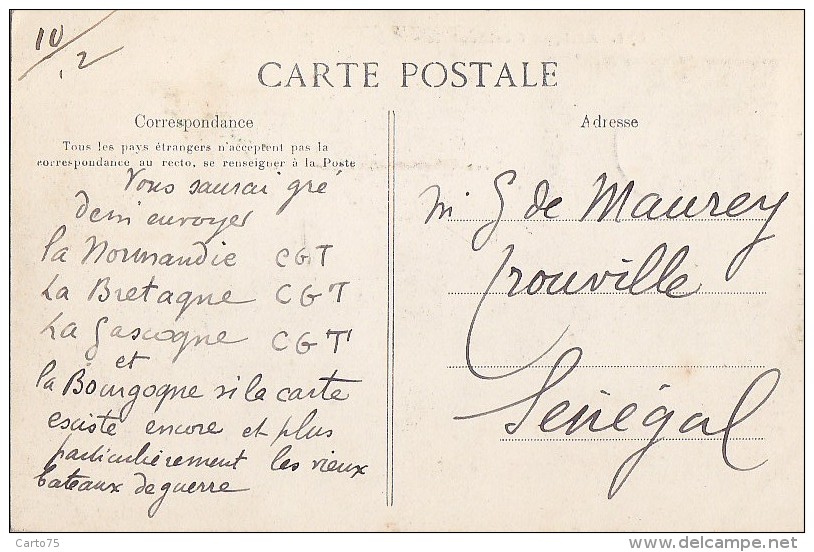 10/.2
CARTE POSTALE
Correspondance
Tous les pays étrangers n'acceptent pas la
correspondance au recto, se renseigner à la Poste
Vous saurai gré
dem envoyer
la Normandie CGT
La Bretagne CGT
La Gascogne CGT
et
la Bourgogne si la carte
esciste encore et plus
particulièrement les vieux
bateaux de guerre
Adresse
M G de Maurey
Trouville
Sénégal
Carto75
delcampe.net